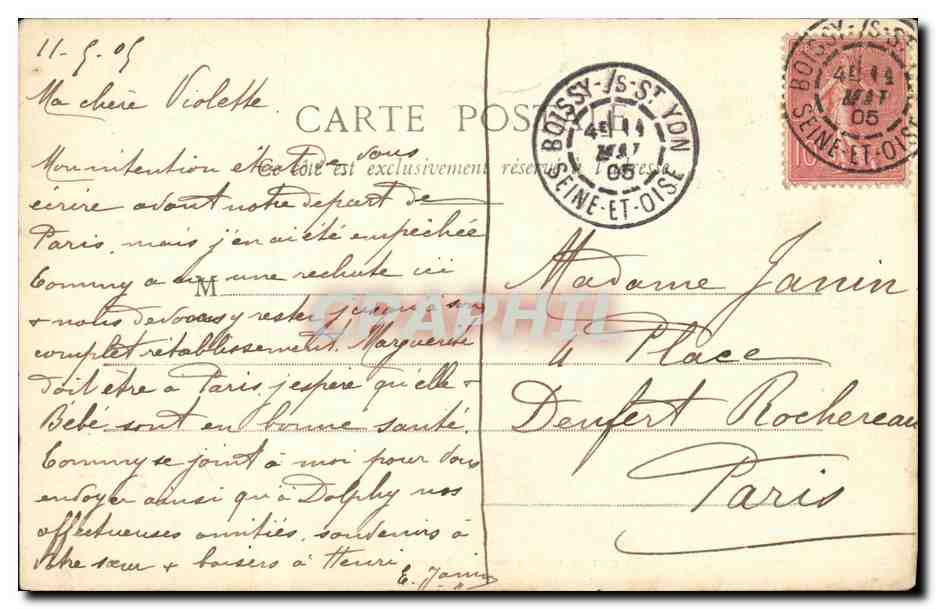 11-5-05
Ma chère Violette
CARTE POSTALE
Ce côté est exclusivement réservé à l'adresse
Mon intention était de vous
écrire avant notre départ de
Paris, mais j'en ai été empêchée
Tommy a eu une rechute ici
+ nous devons y rester jusqu'à son
complet rétablissement. Marguerite
doit être à Paris, j'espère qu'elle +
Bébé sont en bonne santé.
Tommy se joint à moi pour vous
envoyer ainsi qu'à Dolphy nos
affectueuses amitiés, souvenirs à
votre sœur + baisers à Henri
E. Janin
M
Madame Janin
4 Place
Denfert Rochereau
Paris
BOISSY-/S-ST YON
4E 11
MAI
05
SEINE-ET-OISE
BOISSY-/S-ST
4E 11
MAI
05
SEINE-ET-OISE
10
CPAPHIL